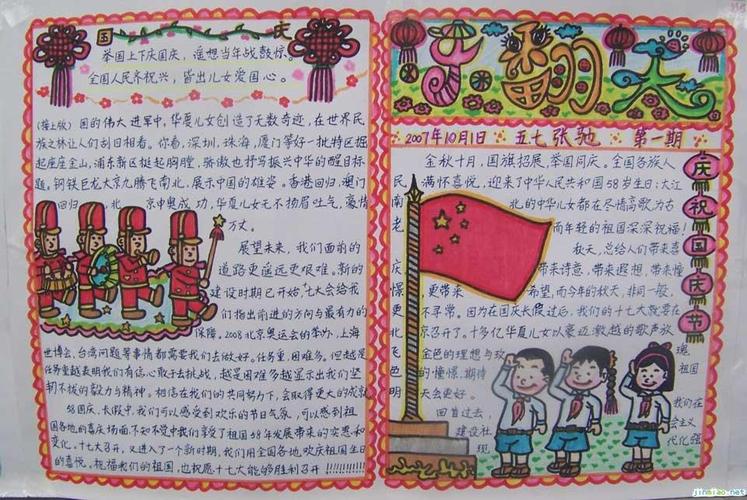 国庆
举国上下庆国庆，遥想当年战鼓惊。
全国人民齐祝兴，皆出儿女爱国心。
(接上版) 国的伟大进军中，华夏儿女创造了无数奇迹，在世界民
族之林让人们刮目相看。你看，深圳，珠海，厦门等好一批特区掘
起座座金山，浦东新区挺起胸膛，骄傲也抒写振兴中华的醒目标
题，钢铁巨龙大京九腾飞南北，展示中国的雄姿。香港回归，澳门
回归，北京申奥成功，华夏儿女无不扬眉吐气，豪情
万丈。
展望未来，我们面前的
道路更遥远更艰难。新的
建设时期已开始，十七大会给我
们指出前进的方向与最有力的
保障。2008北京奥运会的举办，上海
世博会，台湾问题等事情都需要我们去做好。任务重，困难多。但越是
任务重越表明我们有信心敢于去挑战，越是困难多越显示出我们坚
韧不拔的毅力与精神。相信在我们的共同努力下，会取得更大的成就
结国庆，长假中，我们可以感受到欢乐的节日气氛，可以感到祖
国各地的喜庆场面，不知不觉中我们享受了祖国58年发展带来的实惠和
变化。十七大召开，又进入了一个新时期，我们用全国各地，欢庆祖国生日
的喜悦，祝福我们的祖国，也祝愿十七大能够胜利召开!!!!!!!!!!
翻天
2007年10月1日 五七张驰 第一期
庆祝国庆节
金秋十月，国旗招展，举国同庆。全国各族人
民满怀喜悦，迎来了中华人民共和国58岁生日：大江
南北的中华儿女都在尽情高歌，为古
老而年轻的祖国深深祝福！
秋天，总给人们带来喜
庆带来诗意，带来遐想，带来憧
憬，更带来希望，而今年的秋天，非同一般，
更不寻常。因为在国庆长假过后，我们的十七大就要在
北京召开了。十多亿华夏儿女以豪迈，激越的歌声放
飞金色的理想与玫瑰
色的憧憬，期待祖国
明天会更好。
回首过去，我们在
建设社会主义
现代化强
jinmiao.net